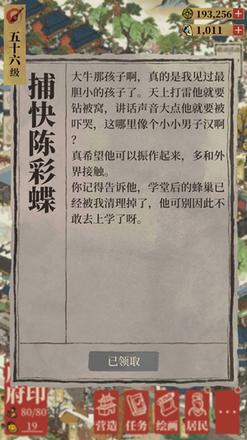 193,256
五十六级
1,011
捕快陈彩蝶
大牛那孩子啊，真的是我见过最
胆小的孩子了。天上打雷他就要
钻被窝，讲话声音大点他就要被
吓哭，这哪里像个小小男子汉啊
？
真希望他可以振作起来，多和外
界接触。
你记得告诉他，学堂后的蜂巢已
经被我清理掉了，他可别因此不
敢去上学了呀。
已领取
府印
80/80
19
营造
任务
绘画
居民